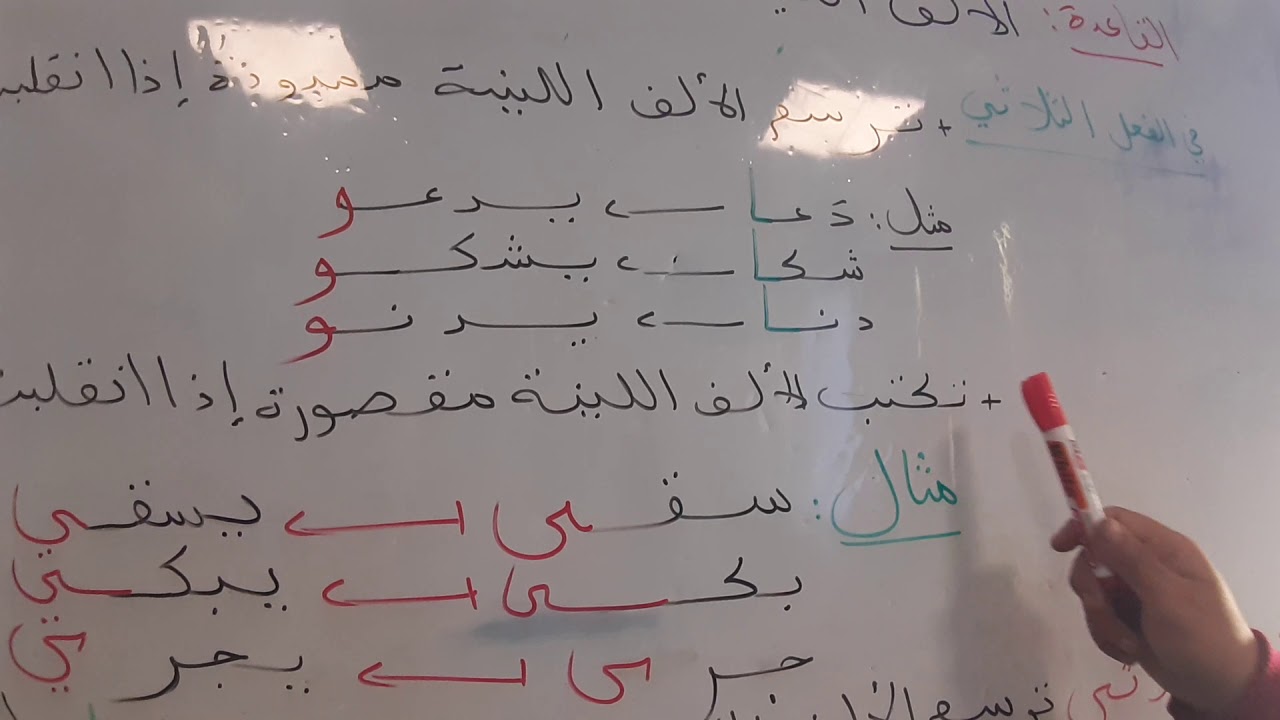 القاعدة: الألف
في الفعل الثلاثي + ترسم الألف اللينة ممدودة إذا انقلبت
مثل: دَعا ← يدعو
شكا ← يشكو
دنا ← يدنو
+ تكتب الألف اللينة مقصورة إذا انقلبت
مثال: سقى ← يسقي
بكى ← يبكي
جرى ← يجري
ترسم